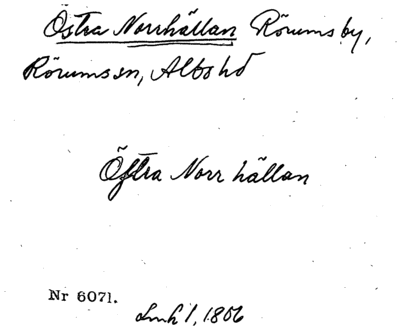 Östra Norrhällan Rörums by,
Rörums sn, Albo hd
Östra Norr hällan
Nr 6071.
Lmh 1, 1806